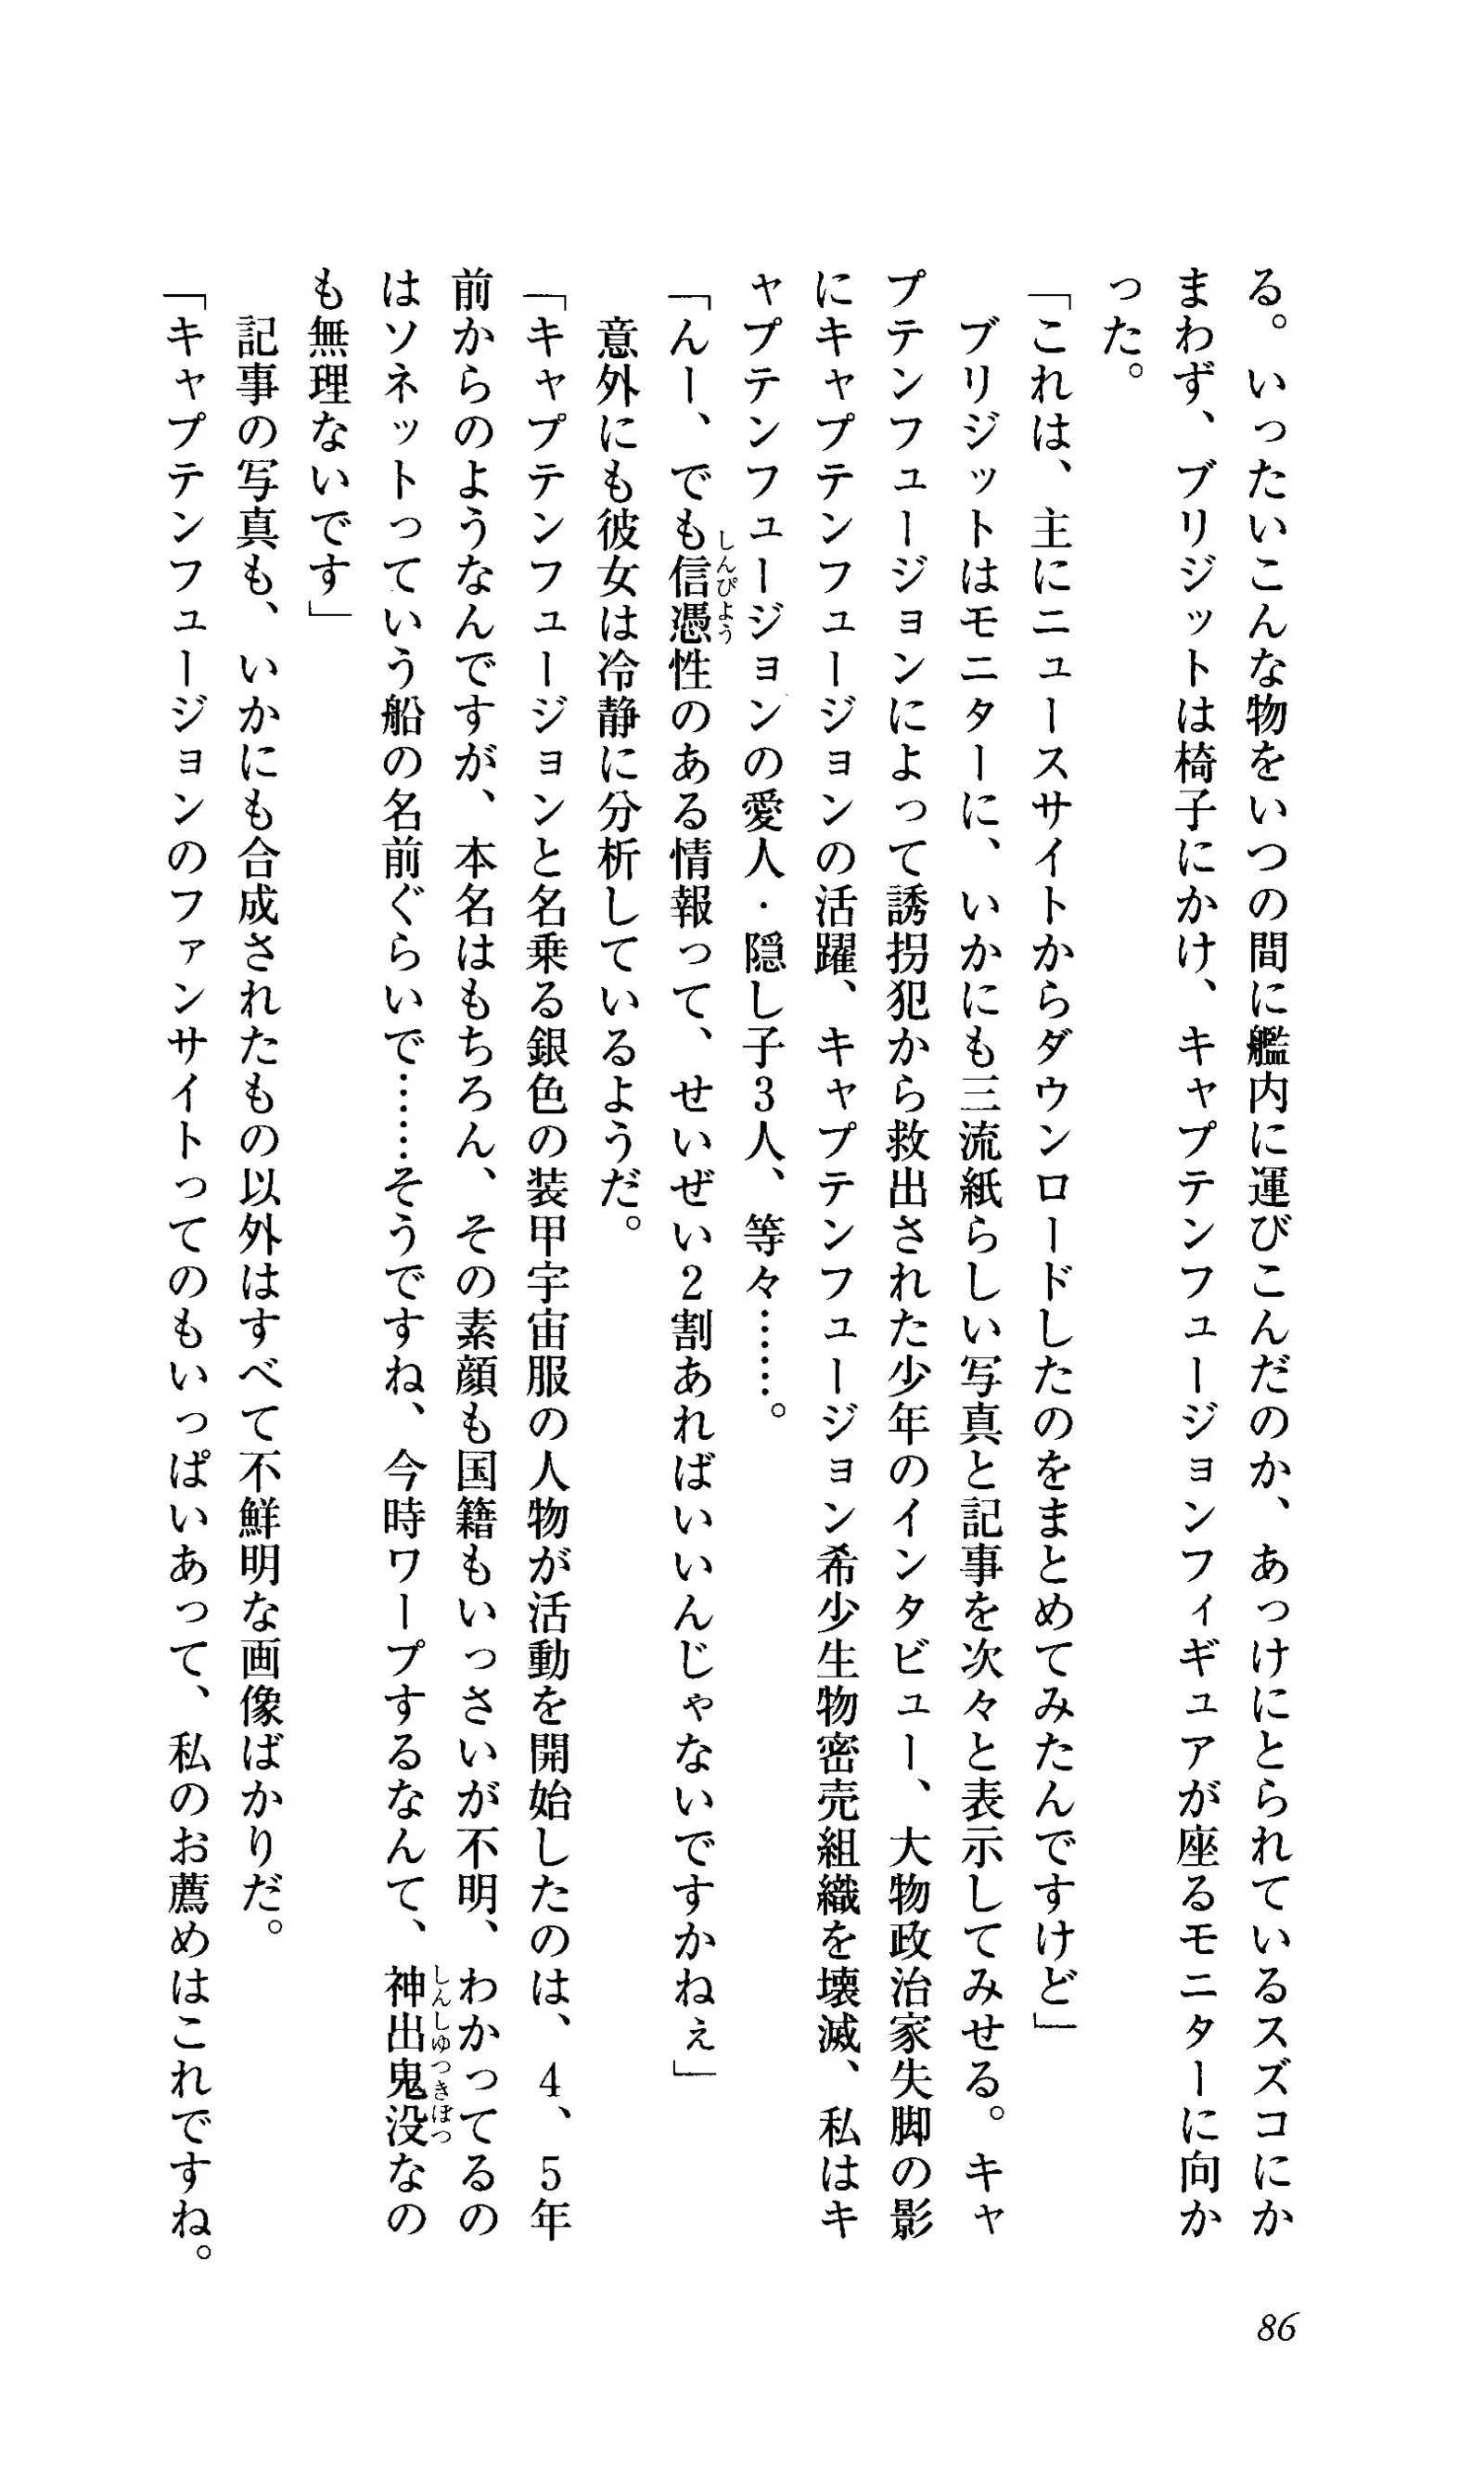 る。いったいこんな物をいつの間に艦内に運びこんだのか、あっけにとられているスズコにか
まわず、ブリジットは椅子にかけ、キャプテンフュージョンフィギュアが座るモニターに向か
った。
「これは、主にニュースサイトからダウンロードしたのをまとめてみたんですけど」
ブリジットはモニターに、いかにも三流紙らしい写真と記事を次々と表示してみせる。キャ
プテンフュージョンによって誘拐犯から救出された少年のインタビュー、大物政治家失脚の影
にキャプテンフュージョンの活躍、キャプテンフュージョン希少生物密売組織を壊滅、私はキ
ャプテンフュージョンの愛人・隠し子3人、等々……。
「んー、でも信憑性のある情報って、せいぜい2割あればいいんじゃないですかねぇ」
しんぴょう
意外にも彼女は冷静に分析しているようだ。
「キャプテンフュージョンと名乗る銀色の装甲宇宙服の人物が活動を開始したのは、4、5年
前からのようなんですが、本名はもちろん、その素顔も国籍もいっさいが不明、わかってるの
はソネットっていう船の名前ぐらいで……そうですね、今時ワープするなんて、神出鬼没なの
しんしゅつきぼつ
も無理ないです」
記事の写真も、いかにも合成されたもの以外はすべて不鮮明な画像ばかりだ。
「キャプテンフュージョンのファンサイトってのもいっぱいあって、私のお薦めはこれですね。
86